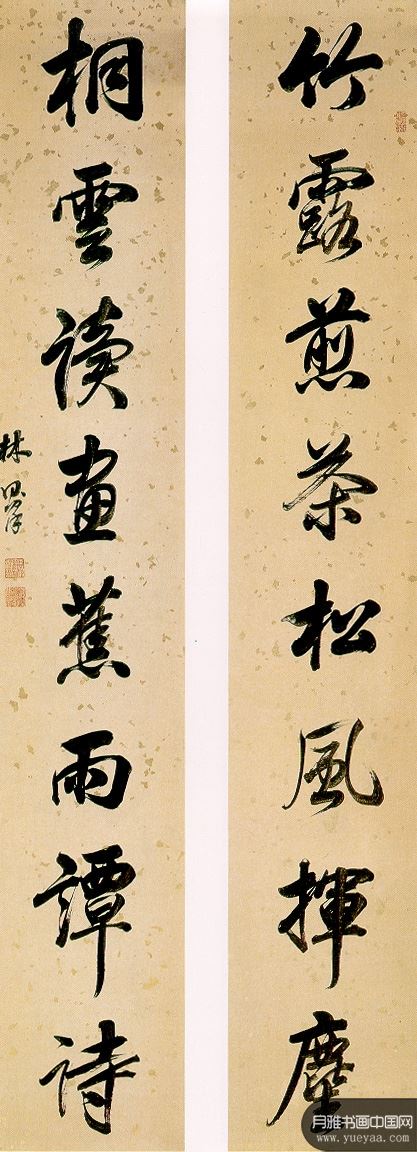 竹露煎茶松風揮麈
桐雲讀畫蕉雨譚詩
林則徐
月雅书画中国网
www.yueyaa.com